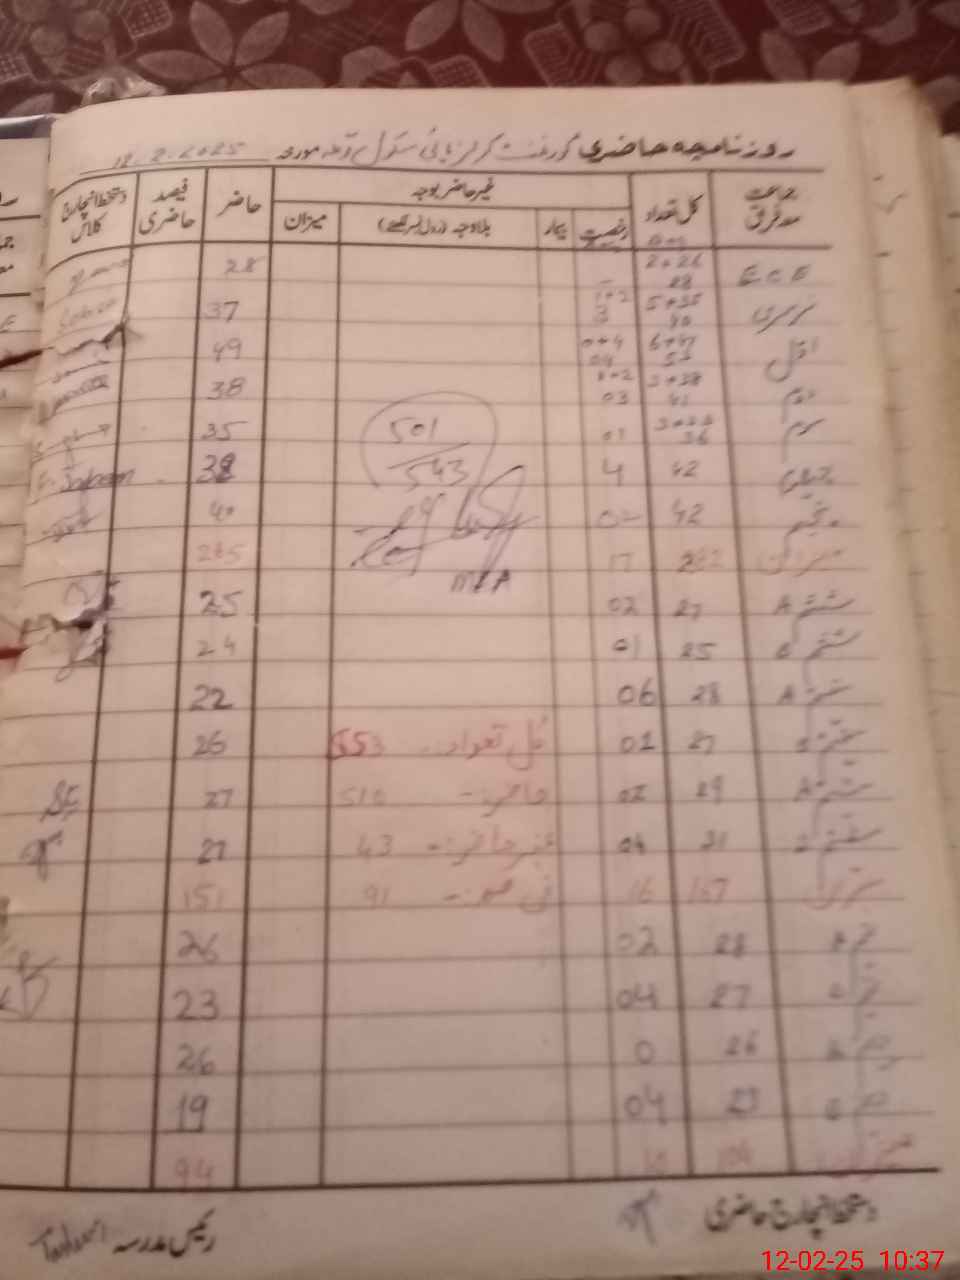 روزنامچہ حاضری گورنمنٹ گرلز ہائی سکول مورخہ 12.2.2025
جماعت معہ فریق کل تعداد غیر حاضر بوجہ حاضر فیصد حاضری دستخط انچارج کلاس
رخصت بیمار بلاوجہ (رول نمبر لکھیئے) میزان
E C E 2+26 28 28
نرسری 5+35 40 1+2 3 37
اول 6+47 53 0+4 04 49
دوم 3+38 41 1+2 03 38
سوم 36 01 35
چہارم 42 4 38
501
543
پنجم 42 02 40
میزان 282 17 265
MEA
ششم A 27 02 25
ششم 25 01 24
ہفتم A 28 06 22
ہفتم 27 01 کل تعداد 553 26
ہشتم A 29 02 حاضر:- 510 27
ہشتم 31 04 غیر حاضر:- 43 27
میزان 167 16 فی صد:- 91 151
نہم 28 02 26
نہم 27 04 23
دہم 26 0 26
دہم 23 04 19
میزان 104 10 94
دستخط انچارج حاضری
رئیس مدرسہ
12-02-25 10:37